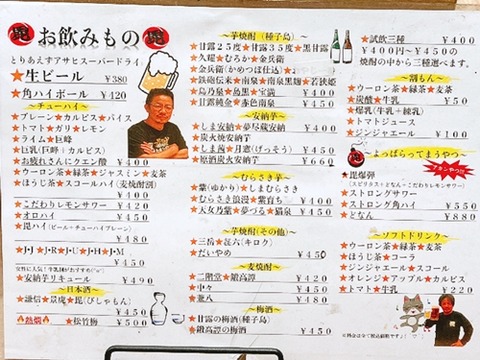 お飲みもの
とりあえずアサヒスーパードライ
★生ビール ¥380
★角ハイボール ¥420
～チューハイ～
★プレーン★カルピス★パイス
★トマト★ガリ★レモン
★ライム★巨峰
★巨乳(巨峰+カルピス)
★お疲れさんにクエン酸 ¥400
★ウーロン茶★緑茶★ジャスミン★麦茶
★ほうじ茶★スコールハイ(麦焼酎割)
¥400
★こだわりレモンサワー ¥420
★オロハイ ¥450
★毘ハイ(ビール+チューハイプレーン)
¥480
¥450
女性に人気!牛乳割おすすめです
★安納芋リキュール ¥490
～日本酒～
★謙信★景虎★毘(びしゃもん)
¥450
熱燗 ★松竹梅 ¥500
～芋焼酎(種子島)～
★甘露25度★甘露35度★黒甘露
★久耀★むろか★金兵衛
★金兵衛(かめつぼ仕込)
★鉄砲伝来★南泉★南泉黒麹★若狭姫
★島乃泉★島黒★宝満 ¥400
★甘露純金★赤色南泉 ¥450
～安納芋～
★しま安納★夢尽蔵安納 ¥400
★炭火焼安納
★しま茜★月窓(げっそう) ¥450
★原酒炭火焼安納 ¥660
～むらさき芋～
★紫(ゆかり)★しまむらさき
★むらさき浪漫★紫育ち ¥400
★天女乃葉★夢づる★猫泉 ¥450
～芋焼酎(その他)～
★三岳★㐂六(キロク)
★だいやめ ¥450
～麦焼酎～
★二階堂★銀高譚 ¥420
★中々 ¥450
★兼八 ¥480
～梅酒～
★甘露の梅酒(種子島)
★銀高譚の梅酒 ¥450
★試飲三種 ¥400
¥400円～¥450の
焼酎の中から三種選べます。
～割もん～
★ウーロン茶★緑茶★麦茶
★炭酸★牛乳 ¥50
★爆乳(牛乳+練乳)
★トマトジュース
★ジンジャエール ¥100
～よっぱらってまうやつ～
★毘爆弾
★ストロングレモンサワー
★ストロング角ハイ ¥550
★どなん ¥880
～ソフトドリンク～
★ウーロン茶★緑茶★麦茶
★ほうじ茶★コーラ
★ジンジャエール★スコール
★オレンジ★アップル★カルピス
★トマト★牛乳 ¥220